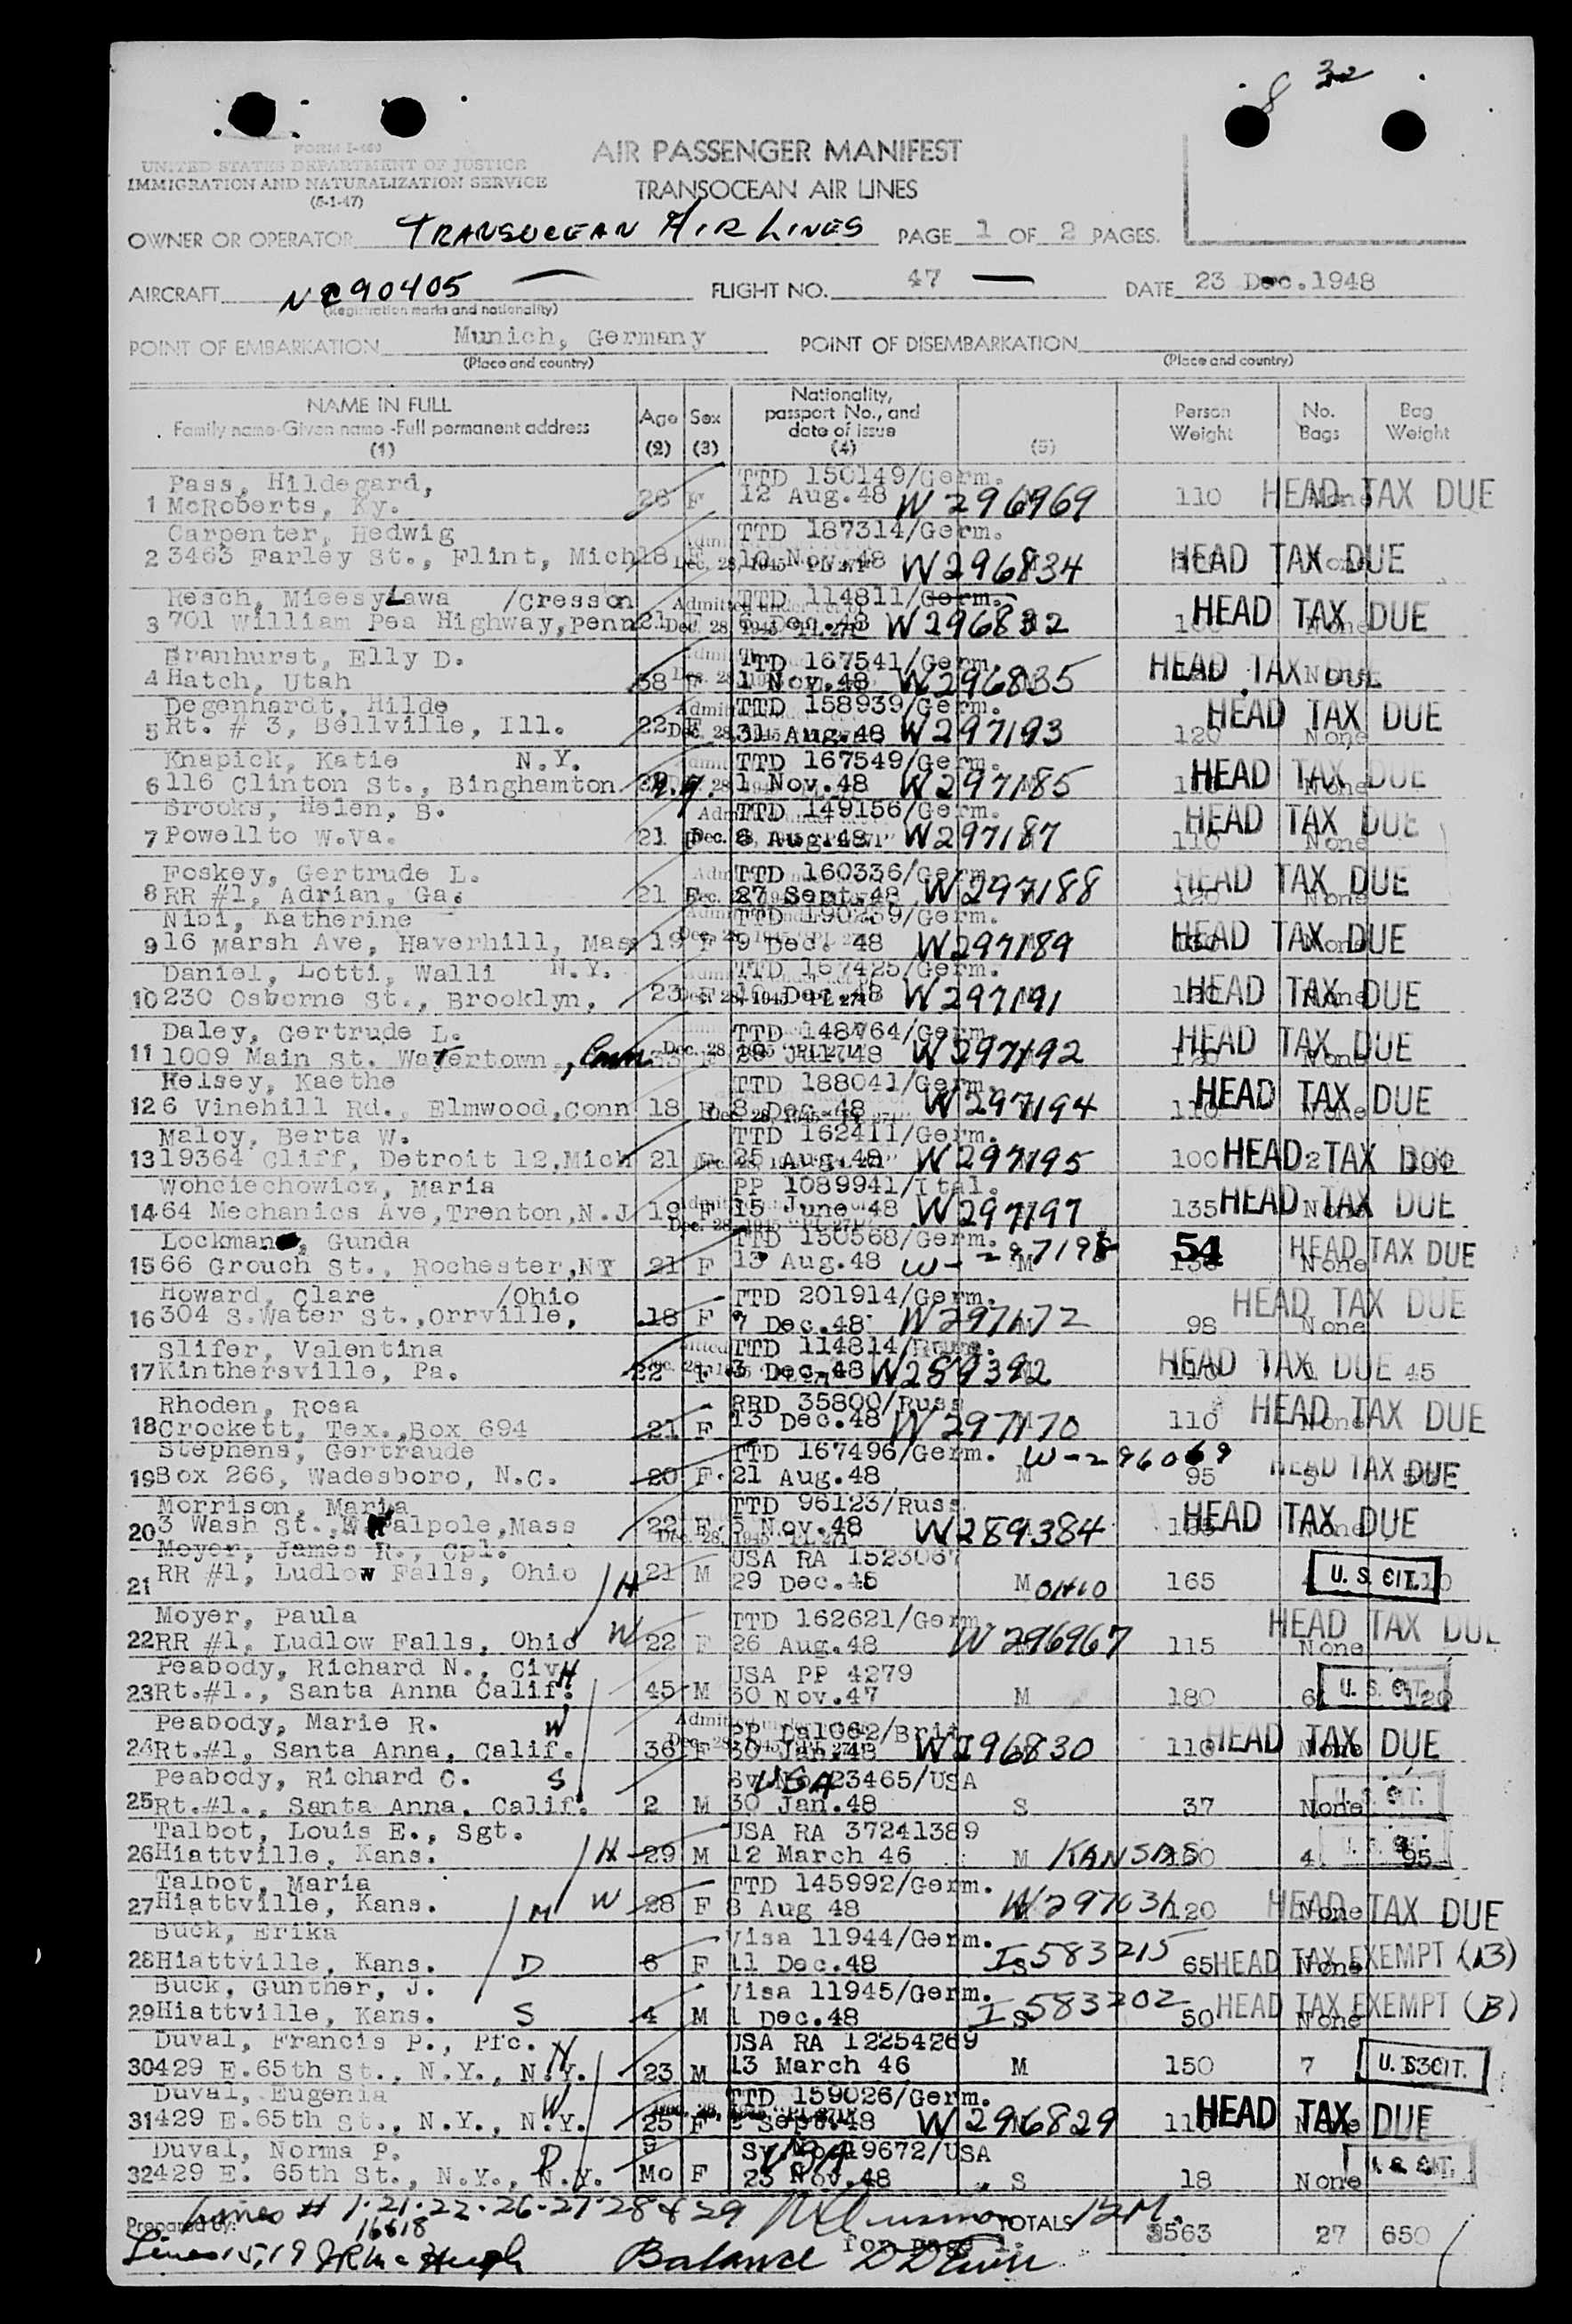 8 32
FORM I-480
UNITED STATES DEPARTMENT OF JUSTICE
IMMIGRATION AND NATURALIZATION SERVICE
(5-1-47)
AIR PASSENGER MANIFEST
TRANSOCEAN AIR LINES
OWNER OR OPERATOR TRANSOCEAN AIR LINES PAGE 1 OF 2 PAGES.
AIRCRAFT NC90405 FLIGHT NO. 47 DATE 23 Dec.1948
(Registration marks and nationality)
POINT OF EMBARKATION Munich, Germany POINT OF DISEMBARKATION
(Place and country) (Place and country)
NAME IN FULL Age Sex Nationality, Person No. Bag
Family name-Given name-Full permanent address passport No., and Weight Bags Weight
date of issue
(1) (2) (3) (4) (5)
Pass, Hildegard, TTD 150149/Germ.
1 McRoberts, Ky. 28 F 12 Aug.48 W296969 110 None HEAD TAX DUE
Carpenter, Hedwig TTD 187314/Germ.
2 3463 Farley St., Flint, Mich 18 F 10 Nov.48 W296834 HEAD TAX DUE
Resch, Micesylawa /Cresson TTD 114811/Germ.
3 701 William Pea Highway, penn 21 F 6 Dec.48 W296832 None HEAD TAX DUE
Branhurst, Elly D. TTD 167541/Germ.
4 Hatch, Utah 38 F 1 Nov.48 W296835 HEAD TAX DUE
Degenhardt, Hilde TTD 158939/Germ.
5 Rt. # 3, Bellville, Ill. 22 F 31 Aug.48 W297193 120 None HEAD TAX DUE
Knapick, Katie N.Y. TTD 167549/Germ.
6 116 Clinton St., Binghamton N.Y. 1 Nov.48 W297185 None HEAD TAX DUE
Brooks, Helen, S. TTD 149156/Germ.
7 Powellto W.Va. 21 F 8 Aug.48 W297187 110 None HEAD TAX DUE
Foskey, Gertrude L. TTD 160336/Germ.
8 RR #1, Adrian, Ga. 21 F 27 Sept.48 W297188 120 None HEAD TAX DUE
Nibi, Katherine TTD 190259/Germ.
9 16 Marsh Ave, Haverhill, Mas 19 F 9 Dec. 48 W297189 None HEAD TAX DUE
Daniel, Lotti, Walli N.Y. TTD 167425/Germ.
10 230 Osborne St., Brooklyn, 23 F 10 Dec.48 W297191 None HEAD TAX DUE
Daley, Gertrude L. TTD 148764/Germ.
11 1009 Main St. Watertown, Conn 33 F 29 Jul.48 W297192 None HEAD TAX DUE
Kelsey, Kaethe TTD 188041/Germ.
12 6 Vinehill Rd., Elmwood, Conn 18 F 8 Dec.48 W297194 110 None HEAD TAX DUE
Maloy, Berta W. TTD 162411/Germ.
13 19364 Cliff, Detroit 12, Mich 21 F 25 Aug.48 W297195 100 2 HEAD TAX DUE
Wohciechowicz, Maria PP 1089941/Ital.
14 64 Mechanics Ave, Trenton, N.J 19 F 15 June 48 W297197 135 None HEAD TAX DUE
Lockman, Gunda TTD 150568/Germ.
15 66 Grouch St., Rochester, NY 21 F 13 Aug.48 W-297198 M 54 None HEAD TAX DUE
Howard, Clare /Ohio TTD 201914/Germ.
16 304 S.Water St., Orrville, 18 F 7 Dec.48 W297172 98 None HEAD TAX DUE
Slifer, Valentina TTD 114814/Russ.
17 Kinthersville, Pa. 22 F 3 Dec.48 W289392 HEAD TAX DUE 45
Rhoden, Rosa RRD 35800/Russ
18 Crockett, Tex., Box 694 21 F 13 Dec.48 W297170 110 None HEAD TAX DUE
Stephens, Gertraude TTD 167496/Germ. W-296069
19 Box 266, Wadesboro, N.C. 20 F 21 Aug.48 M 95 HEAD TAX DUE
Morrison, Maria TTD 96123/Russ
20 3 Wash St., Walpole, Mass 22 F 5 Nov.48 W289384 None HEAD TAX DUE
Moyer, James R., Cpl. USA RA 1523067
21 RR #1, Ludlow Falls, Ohio H 21 M 29 Dec.45 M OHIO 165 U. S. CIT.
Moyer, Paula TTD 162621/Germ.
22 RR #1, Ludlow Falls, Ohio W 22 F 26 Aug.48 W296967 115 None HEAD TAX DUE
Peabody, Richard N., Civ H USA PP 4279
23 Rt.#1., Santa Anna Calif. 45 M 30 Nov.47 M 180 6 U. S. CIT. 120
Peabody, Marie R. W PP
24 Rt.#1, Santa Anna, Calif. 36 F 30 Jan.48 W296830 110 None HEAD TAX DUE
Peabody, Richard C. S Sv No 23465/USA USA
25 Rt.#1., Santa Anna, Calif. 2 M 30 Jan.48 S 37 None U. S. CIT.
Talbot, Louis E., Sgt. USA RA 37241389
26 Hiattville, Kans. H 29 M 12 March 46 M KANSAS 4 U. S. CIT. 95
Talbot, Maria TTD 145992/Germ.
27 Hiattville, Kans. M W 28 F 8 Aug 48 W297031 120 None HEAD TAX DUE
Buck, Erika Visa 11944/Germ.
28 Hiattville, Kans. D 6 F 11 Dec.48 S I583215 65 None HEAD TAX EXEMPT (B)
Buck, Gunther, J. Visa 11945/Germ.
29 Hiattville, Kans. S 4 M 1 Dec.48 S I583202 50 None HEAD TAX EXEMPT (B)
Duval, Francis P., Pfc. H USA RA 12254269
30 429 E.65th St., N.Y., N.Y. 23 M 13 March 46 M 150 7 U. S. CIT.
Duval, Eugenia W TTD 159026/Germ.
31 429 E.65th St., N.Y., N.Y. 25 F 2 Sept.48 W296829 110 None HEAD TAX DUE
Duval, Norma P. D 9 Sv No 19672/USA USA
32 429 E. 65th St., N.Y., N.Y. Mo F 23 Nov.48 S 18 None U. S. CIT.
Lines # 1-21-22-26-27-28 & 29
16&18
Prepared by: TOTALS 3563 27 650
for page 1.
Lines 15,19 JR McHugh Balance